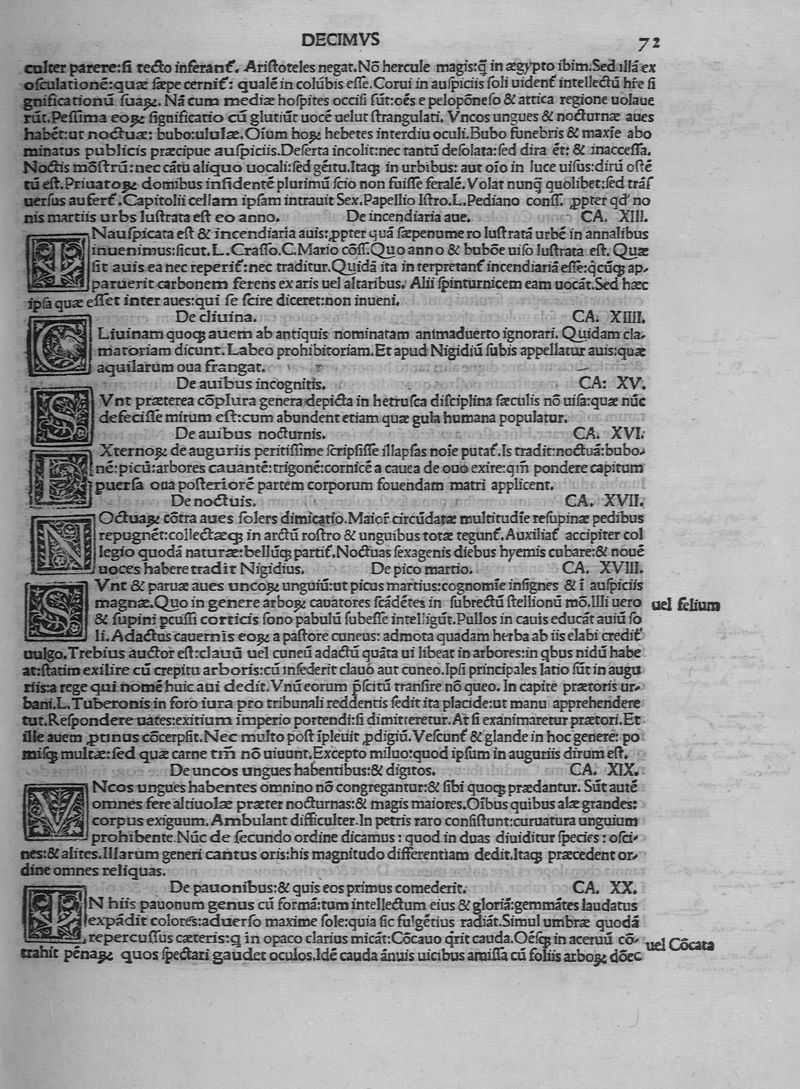 DECIMVS 72
culter parere:si tecto inferant̃. Aristoteles negat.Nõ hercule magis:q̃ in ægypto ibim.Sed illã ex
osculationẽ:quæ sæpe cernit̃: qualẽ in colũbis esse.Corui in auspiciis soli uident̃ intellectũ hr̃e si
gnificationũ suaꝝ. Nã cum mediæ hospites occisi sũt:oẽs e pelopõneso & attica regione uolaue
rũt.Pessima eoꝝ significatio cũ glutiũt uocẽ uelut strangulati. Vncos ungues & nocturnæ aues
habẽt:ut noctuæ: bubo:ululæ.Oĩum hoꝝ hebetes interdiu oculi.Bubo funebris & maxĩe abo
minatus publicis præcipue auspiciis.Deserta incolit:nec tantũ desolata:sed dira ẽt: & inaccessa.
Noctis mõstrũ:nec cãtu aliquo uocali:sed gẽitu.Itaqꝫ in urbibus: aut oĩo in luce uisus:dirũ ostẽ
tũ est.Priuatoꝝ domibus insidentẽ plurimũ scio non fuisse feralẽ.Volat nunq̃ quolibet:sed trãs
uersus aufert̃.Capitolii cellam ipsam intrauit Sex.Papellio Istro.L.Pediano conss. ꝓpter qd̃ no
nis martiis urbs lustrata est eo anno. De incendiaria aue. CA. XIII.
INauspicata est & incendiaria auis:ꝓpter quã sæpenumero lustratã urbẽ in annalibus
inuenimus:sicut.L.Crasso.C.Mario cõss.Quo anno & bubõe uiso lustrata est. Quæ
sit auis ea nec reperit̃:nec traditur.Quidã ita in terpretant̃ incendiariã esse:q̃cũqꝫ ap-
paruerit carbonem ferens ex aris uel altaribus. Alii spinturnicem eam uocãt.Sed hæc
ipsa quæ esset inter aues:qui se scire diceret:non inueni.
De cliuina. CA. XIIII.
CLiuinam quoqꝫ auem ab antiquis nominatam animaduerto ignorari. Quidam cla-
matoriam dicunt.Labeo prohibitoriam.Et apud Nigidiũ subis appellatur auis:quæ
aquilarum oua frangat.
De auibus incognitis. CA: XV.
SVnt præterea cõplura genera depicta in hetrusca disciplina sæculis nõ uisa:quæ nũc
defecisse mirum est:cum abundent etiam quæ gula humana populatur.
De auibus nocturnis. CA. XVI.
EXternoꝝ de auguriis peritissime scripsisse illapsas noĩe putat̃.Is tradit:noctuã:bubo-
nẽ:picũ:arbores cauantẽ:trigonẽ:cornicẽ a cauea de ouo exire:qm̃ pondere capitum
puersa oua posteriorẽ partem corporum fouendam matri applicent.
De noctuis. CA. XVII.
NOctuaꝝ cõtra aues solers dimicatio.Maior̃ circũdatæ multitudĩe resupinæ pedibus
repugnẽt:collectæqꝫ in arctũ rostro & unguibus totæ tegunt̃.Auxiliat̃ accipiter col
legio quodã naturæ:bellũqꝫ partit̃.Noctuas sexagenis diebus hyemis cubare:& nouẽ
uoces habere tradit Nigidius. De pico martio. CA. XVIII.
SVnt & paruæ aues uncoꝝ unguiũ:ut picus martius:cognomĩe insignes & ĩ auspiciis
magnæ.Quo in genere arboꝝ cauatores scãdẽtes in subrectũ stellionũ mõ.Illi uero uel felium
& supini ꝑcussi corticis sono pabulũ subesse intelligũt.Pullos in cauis educãt auiũ so
li.Adactus cauernis eoꝝ a pastore cuneus: admota quadam herba ab iis elabi credit̃
uulgo.Trebius auctor est:clauũ uel cuneũ adactũ quãta ui libeat in arbores:in qbus nidũ habe
at:statim exilire cũ crepitu arboris:cũ insederit clauo aut cuneo.Ipsi principales latio sũt in augu
riis:a rege qui nomẽ huic aui dedit.Vnũ eorum p̃scitũ transire nõ queo. In capite prætoris ur-
bani.L.Tuberonis in foro iura pro tribunali reddentis sedit ita placide:ut manu apprehendere
tur.Respondere uates:exitium imperio portendi:si dimitteretur.At si exanimaretur prætori.Et
ille auem ꝓtinus cõcerpsit.Nec multo post ĩpleuit ꝓdigiũ.Vescunt̃ & glande in hoc genere: po
misqꝫ multæ:sed quæ carne tm̃ nõ uiuunt.Excepto miluo:quod ipsum in auguriis dirum est.
De uncos ungues habentibus:& digitos. CA. XIX.
VNcos ungues habentes omnino nõ congregantur:& sibi quoqꝫ prædantur. Sũt autẽ
omnes fere altiuolæ præter nocturnas:& magis maiores.Oĩbus quibus alæ grandes:
corpus exiguum. Ambulant difficulter.In petris raro consistunt:curuatura unguium
prohibente.Nũc de secundo ordine dicamus : quod in duas diuiditur species : osci-
nes:& alites.Illarum generi cantus oris:his magnitudo differentiam dedit.Itaqꝫ præcedent or-
dine omnes reliquas.
De pauonibus:& quis eos primus comederit. CA. XX.
IN hiis pauonum genus cũ formã:tum intellectum eius & gloriã:gemmãtes laudatus
expãdit colores:aduerso maxime sole:quia sic fulgẽtius radiãt.Simul umbræ quodã
repercussus cæteris:q in opaco clarius micãt:Cõcauo q̃rit cauda.Oẽsqꝫ in aceruũ cõ- uel Cõcata
trahit pẽnaꝝ quos spectari gaudet oculos.Idẽ cauda ãnuis uicibus amissa cũ foliis arboꝝ dõec